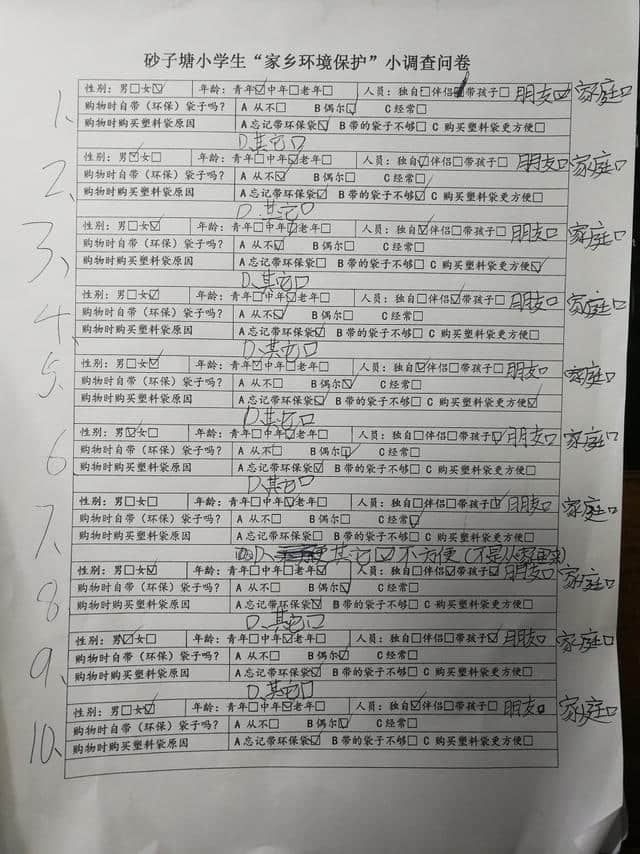 砂子塘小学生“家乡环境保护”小调查问卷
1、
性别：男□女☑ 年龄：青年☑中年□老年□ 人员：独自□伴侣□带孩子□ 朋友☑ 家庭□
购物时自带（环保）袋子吗？ A 从不□ B 偶尔☑ C 经常□
购物时购买塑料袋原因 A 忘记带环保袋☑ B 带的袋子不够□ C 购买塑料袋更方便□
D.其它□
2、
性别：男☑女□ 年龄：青年□中年☑老年□ 人员：独自☑伴侣□带孩子□ 朋友□ 家庭□
购物时自带（环保）袋子吗？ A 从不☑ B 偶尔□ C 经常□
购物时购买塑料袋原因 A 忘记带环保袋☑ B 带的袋子不够☑ C 购买塑料袋更方便□
D.其它□
3、
性别：男□女☑ 年龄：青年□中年☑老年□ 人员：独自☑伴侣□带孩子□ 朋友□ 家庭□
购物时自带（环保）袋子吗？ A 从不☑ B 偶尔□ C 经常□
购物时购买塑料袋原因 A 忘记带环保袋□ B 带的袋子不够□ C 购买塑料袋更方便☑
D.其它□
4、
性别：男□女☑ 年龄：青年□中年☑老年□ 人员：独自□伴侣☑带孩子□ 朋友□ 家庭□
购物时自带（环保）袋子吗？ A 从不☑ B 偶尔□ C 经常□
购物时购买塑料袋原因 A 忘记带环保袋☑ B 带的袋子不够□ C 购买塑料袋更方便□
D.其它□
5、
性别：男□女☑ 年龄：青年☑中年□老年□ 人员：独自☑伴侣□带孩子□ 朋友□ 家庭□
购物时自带（环保）袋子吗？ A 从不□ B 偶尔☑ C 经常□
购物时购买塑料袋原因 A 忘记带环保袋□ B 带的袋子不够□ C 购买塑料袋更方便☑
D.其它□
6、
性别：男☑女□ 年龄：青年□中年☑老年□ 人员：独自□伴侣□带孩子☑ 朋友□ 家庭□
购物时自带（环保）袋子吗？ A 从不□ B 偶尔☑ C 经常□
购物时购买塑料袋原因 A 忘记带环保袋☑ B 带的袋子不够□ C 购买塑料袋更方便□
D.其它□
7、
性别：男□女☑ 年龄：青年□中年☑老年□ 人员：独自□伴侣□带孩子☑ 朋友□ 家庭□
购物时自带（环保）袋子吗？ A 从不□ B 偶尔□ C 经常☑
购物时购买塑料袋原因 A 忘记带环保袋□ B 带的袋子不够□ C 购买塑料袋更方便□
D、其它☑不方便（不是从家里来）
8、
性别：男□女☑ 年龄：青年□中年□老年☑ 人员：独自□伴侣☑带孩子☑ 朋友□ 家庭□
购物时自带（环保）袋子吗？ A 从不□ B 偶尔☑ C 经常□
购物时购买塑料袋原因 A 忘记带环保袋☑ B 带的袋子不够□ C 购买塑料袋更方便□
D.其它□
9、
性别：男☑女□ 年龄：青年□中年☑老年□ 人员：独自□伴侣□带孩子☑ 朋友□ 家庭□
购物时自带（环保）袋子吗？ A 从不□ B 偶尔☑ C 经常□
购物时购买塑料袋原因 A 忘记带环保袋☑ B 带的袋子不够□ C 购买塑料袋更方便□
D.其它□
10、
性别：男□女☑ 年龄：青年□中年☑老年□ 人员：独自☑伴侣□带孩子□ 朋友□ 家庭□
购物时自带（环保）袋子吗？ A 从不□ B 偶尔☑ C 经常□
购物时购买塑料袋原因 A 忘记带环保袋☑ B 带的袋子不够□ C 购买塑料袋更方便□